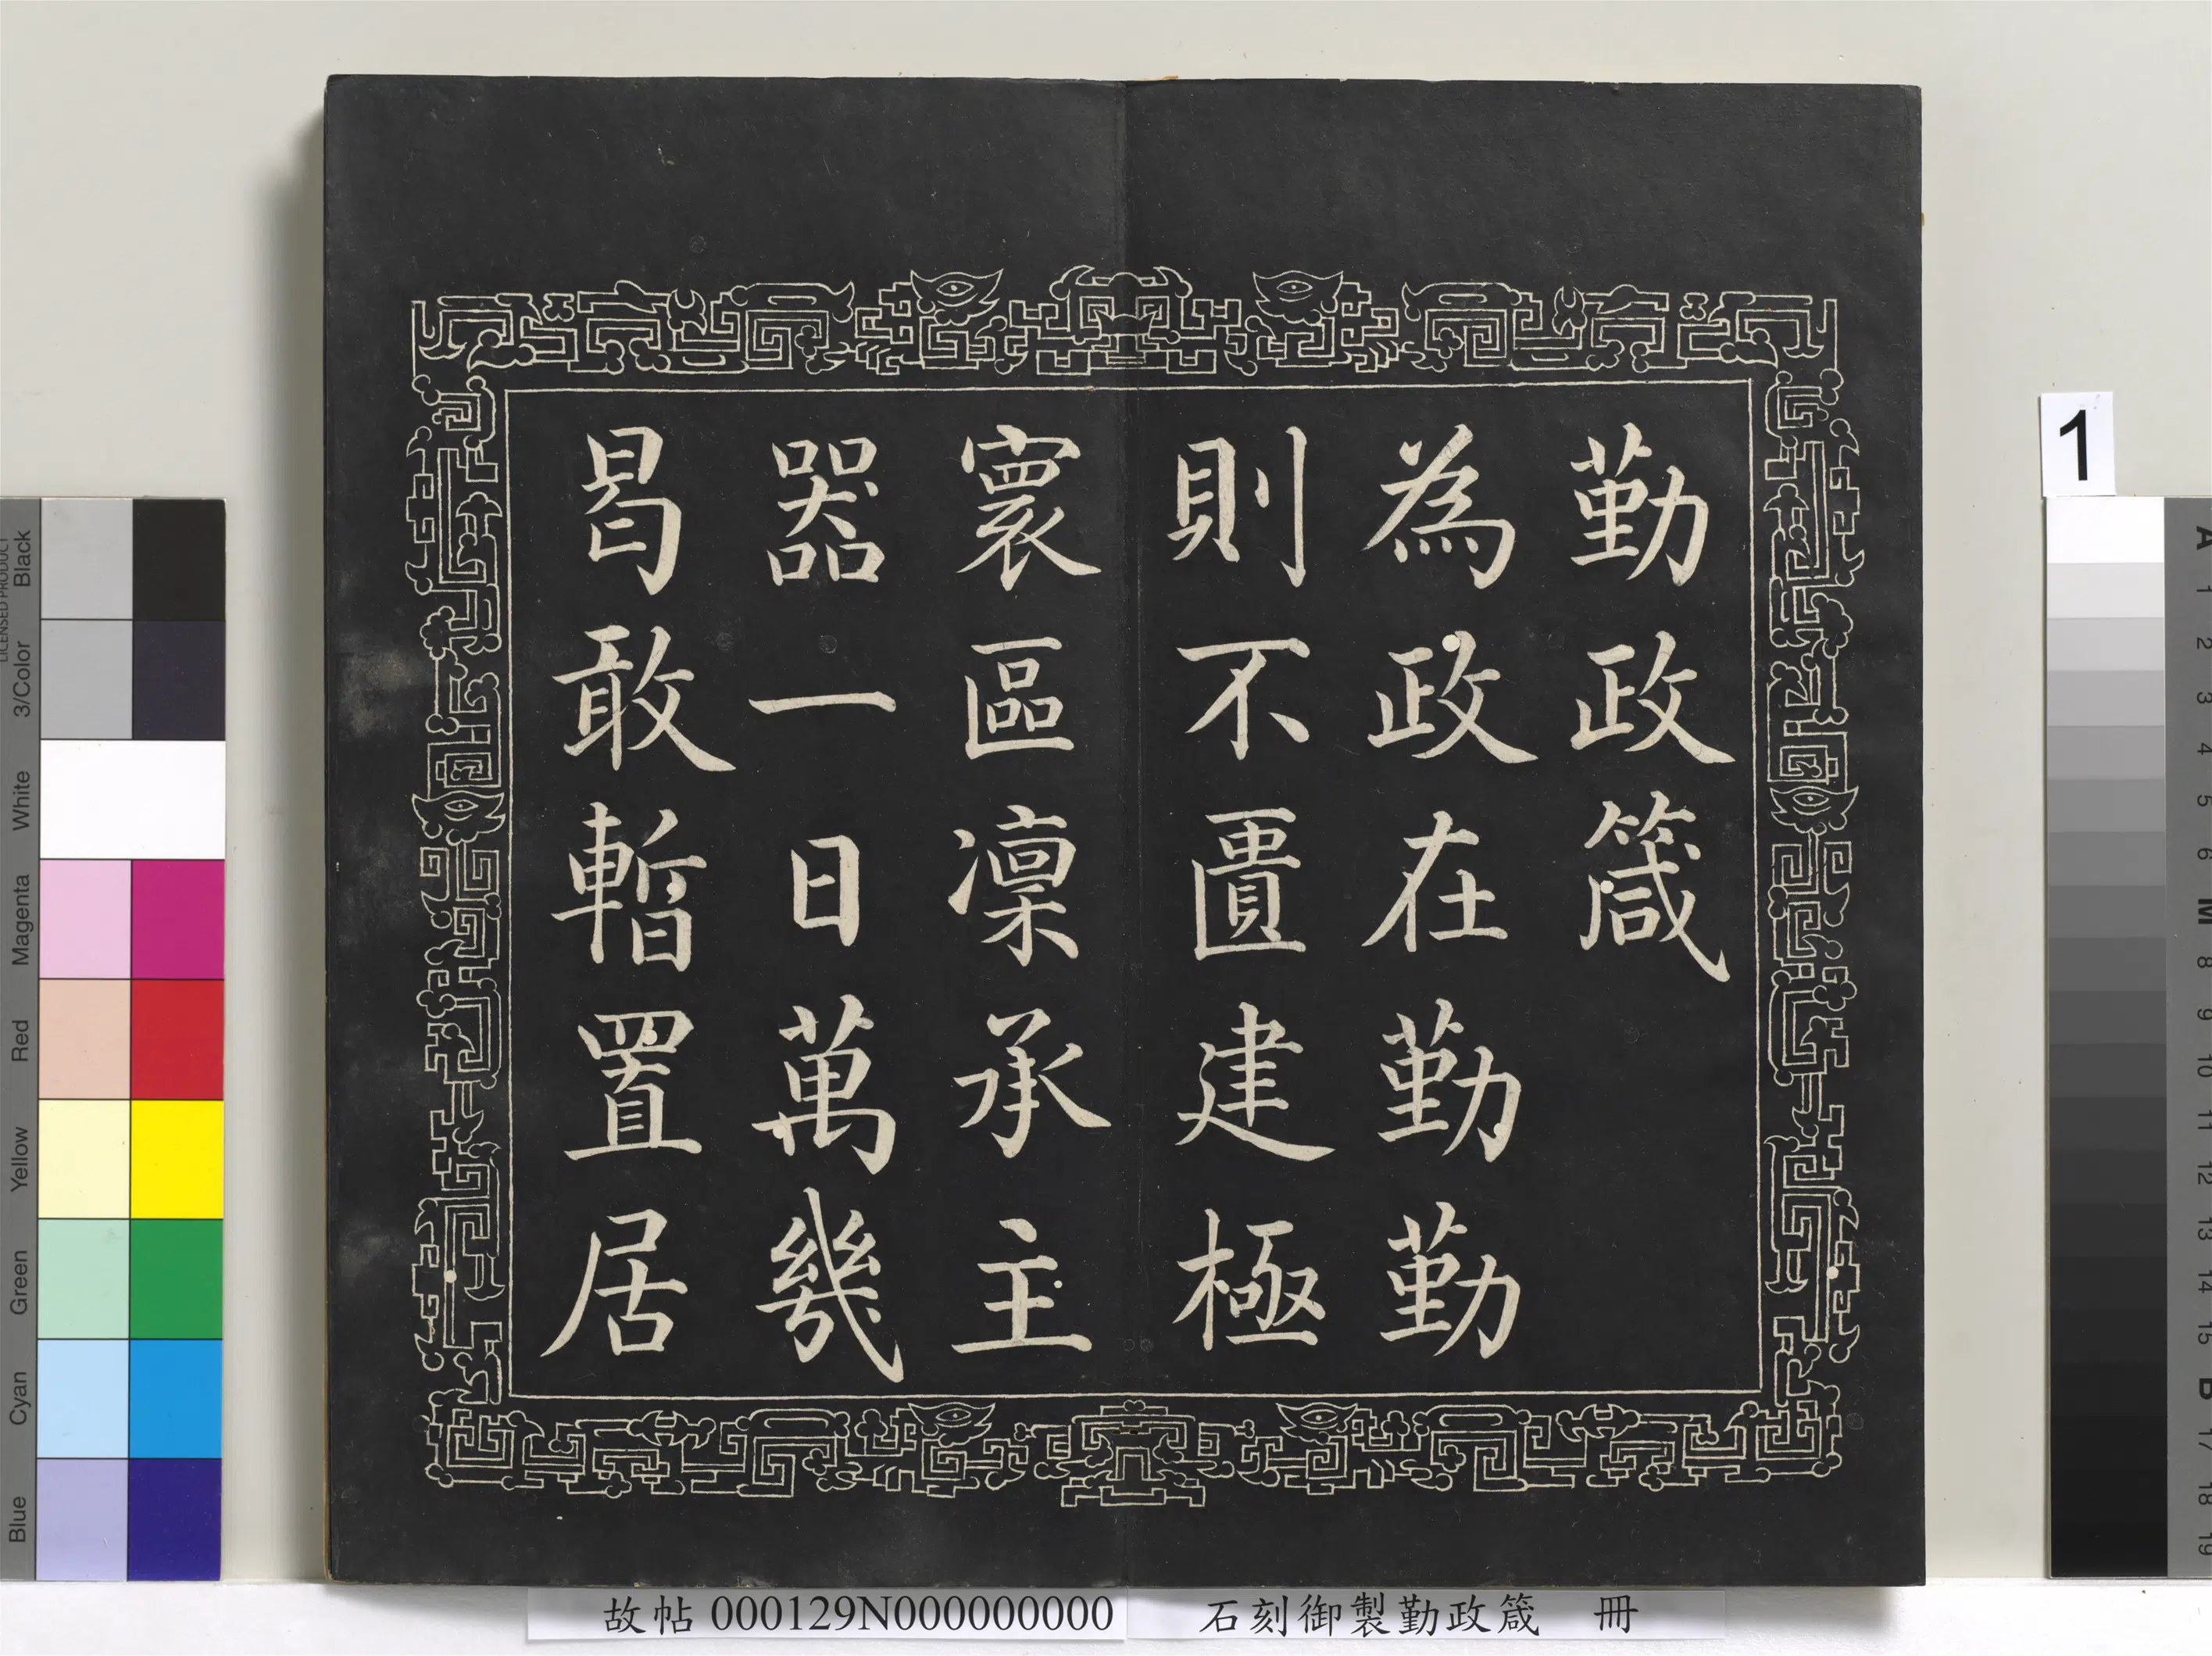 勤政箴
為政在勤勤
則不匱建極
寰區凜承主
器一日萬幾
曷敢暫置居
故帖000129N000000000 石刻御製勤政箴 冊
1
LICENSED PRODUCT
Black
3/Color
White
Magenta
Red
Yellow
Green
Cyan
Blue
A 1 2 3 4 5 6 M 8 9 10 11 12 13 14 15 B 17 18 19